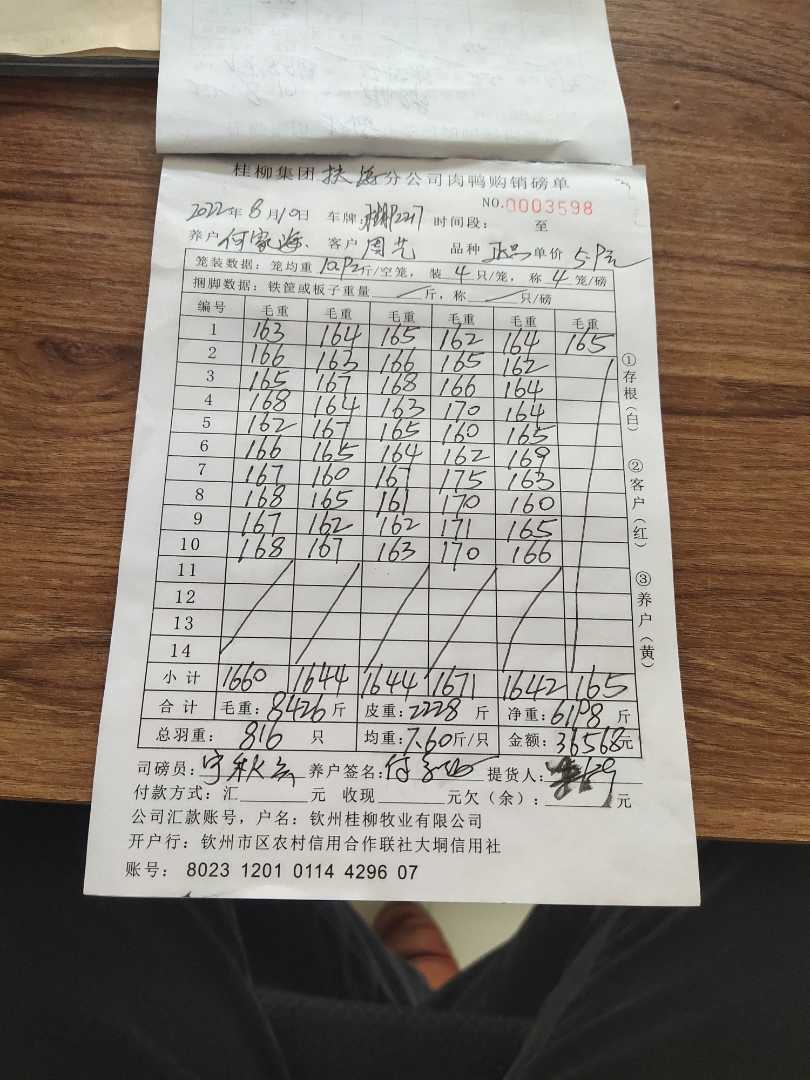 桂柳集团扶绥分公司肉鸭购销磅单
NO.0003598
2022年8月10日 车牌: 时间段: 至
养户 何家海 客户 周艺 品种 正品 单价 5.9元
笼装数据:笼均重 10.92斤/空笼,装 4 只/笼,称 4 笼/磅
捆脚数据:铁筐或板子重量 斤,称 只/磅
编号 毛重 毛重 毛重 毛重 毛重 毛重
1 163 164 165 162 164 165
2 166 163 166 165 162
3 165 167 168 166 164
4 168 164 163 170 164
5 162 167 165 160 165
6 166 165 164 162 169
7 167 160 167 175 163
8 168 165 161 170 160
9 167 162 162 171 165
10 168 167 163 170 166
11
12
13
14
小计 1660 1644 1644 1671 1642 165
合计 毛重:8426斤 皮重:2228斤 净重:6198斤
总羽重: 816 只 均重:7.60斤/只 金额:36568元
司磅员: 养户签名: 提货人:
付款方式:汇 元 收现 元欠(余): 元
公司汇款账号,户名:钦州桂柳牧业有限公司
开户行:钦州市区农村信用合作联社大垌信用社
账号: 8023 1201 0114 4296 07
①存根(白)
②客户(红)
③养户(黄)